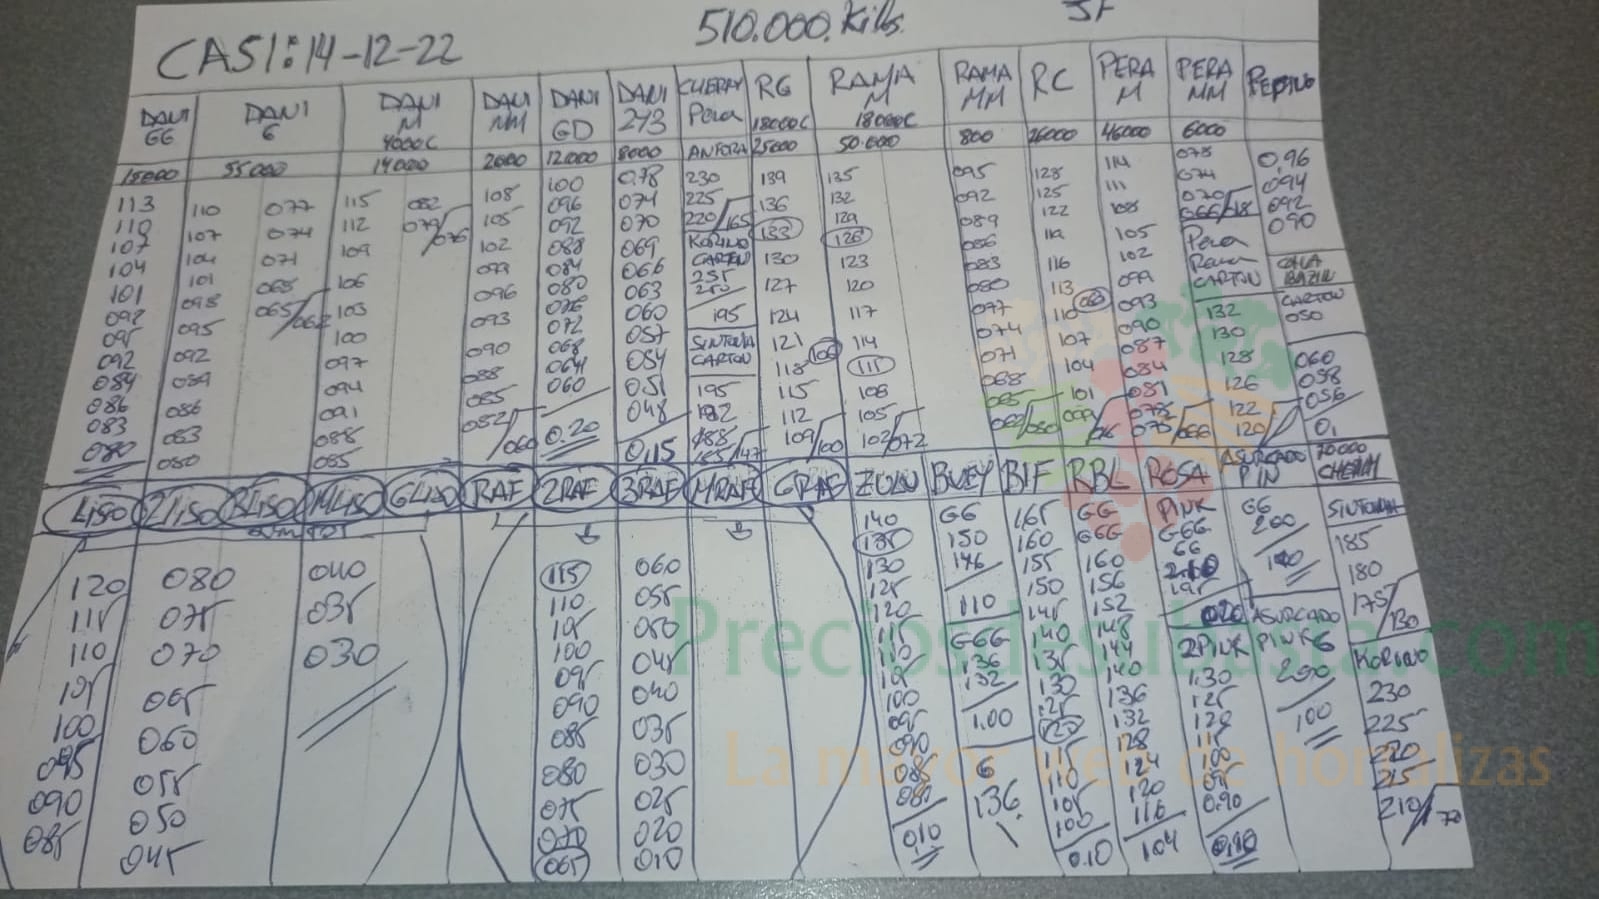 CASI: 14-12-22
510.000. Kills.
DANI GG
DANI G
DANI M 4000C
DANI MM
DANI GD
DANI 2y3
CHERRY Pera
RG 18000C
RAMA M 18000C
RAMA MM
RC
PERA M
PERA MM
PEPINO
15000
55000
14000
2000
12000
8000
ANFORA
25000
50.000
800
26000
46000
6000
113
110
107
104
101
098
095
092
110 077
107 074
104 071
101 068
098 065/062
095
092
089
086
083
080
115 082
112 079/076
109
106
103
100
097
094
091
088
085
108
105
102
099
096
093
090
088
085
082/060
100
096
092
088
084
080
076
072
068
064
060
0.20
0.78
074
070
069
066
063
060
057
054
051
048
0,15
230
225
220/165
KORINO
CARTON
195
SINTONIA
CARTON
195
192
139
136
133
130
127
124
121
118
115
112
109/100
135
132
129
126
123
120
117
114
106
105
102/072
095
092
089
086
083
080
077
074
071
068
065
128
125
122
119
116
113
110
107
104
101
114
111
108
105
102
099
093
090
087
084
081
078
074
070
Pera
Rama
CARTON
132
130
128
126
122
120
0.96
094
092
090
CARTON
050
060
058
056
LISO
2LISO
3LISO
MLISO
GLISO
RAF
2RAF
3RAF
MRAF
GRAF
ZULU
BUEY
BIF
RBL
ROSA
ASURCADO PIN
CHERRY
120
115
110
105
100
095
090
085
080
075
070
065
060
055
050
045
040
035
030
115
110
105
100
095
090
085
080
075
070
065
060
055
050
045
040
035
030
025
020
010
140
135
130
125
120
115
110
105
100
095
090
085
080
0,10
GG
150
146
110
GGG
136
132
1.00
G
136
165
160
155
150
145
140
135
130
125
120
115
110
105
100
0.10
GG
GGG
160
156
152
148
144
140
136
132
128
124
120
116
104
PINK
GGG
GG
195
2PINK
1.30
125
120
115
1.00
095
0.90
GG
200
100
ASURCADO
PINK G
200
100
SINTONIA
185
180
175/130
KORINO
230
225
220
215
210/170
Preciosdesubasta.com
La mayor web de hortalizas